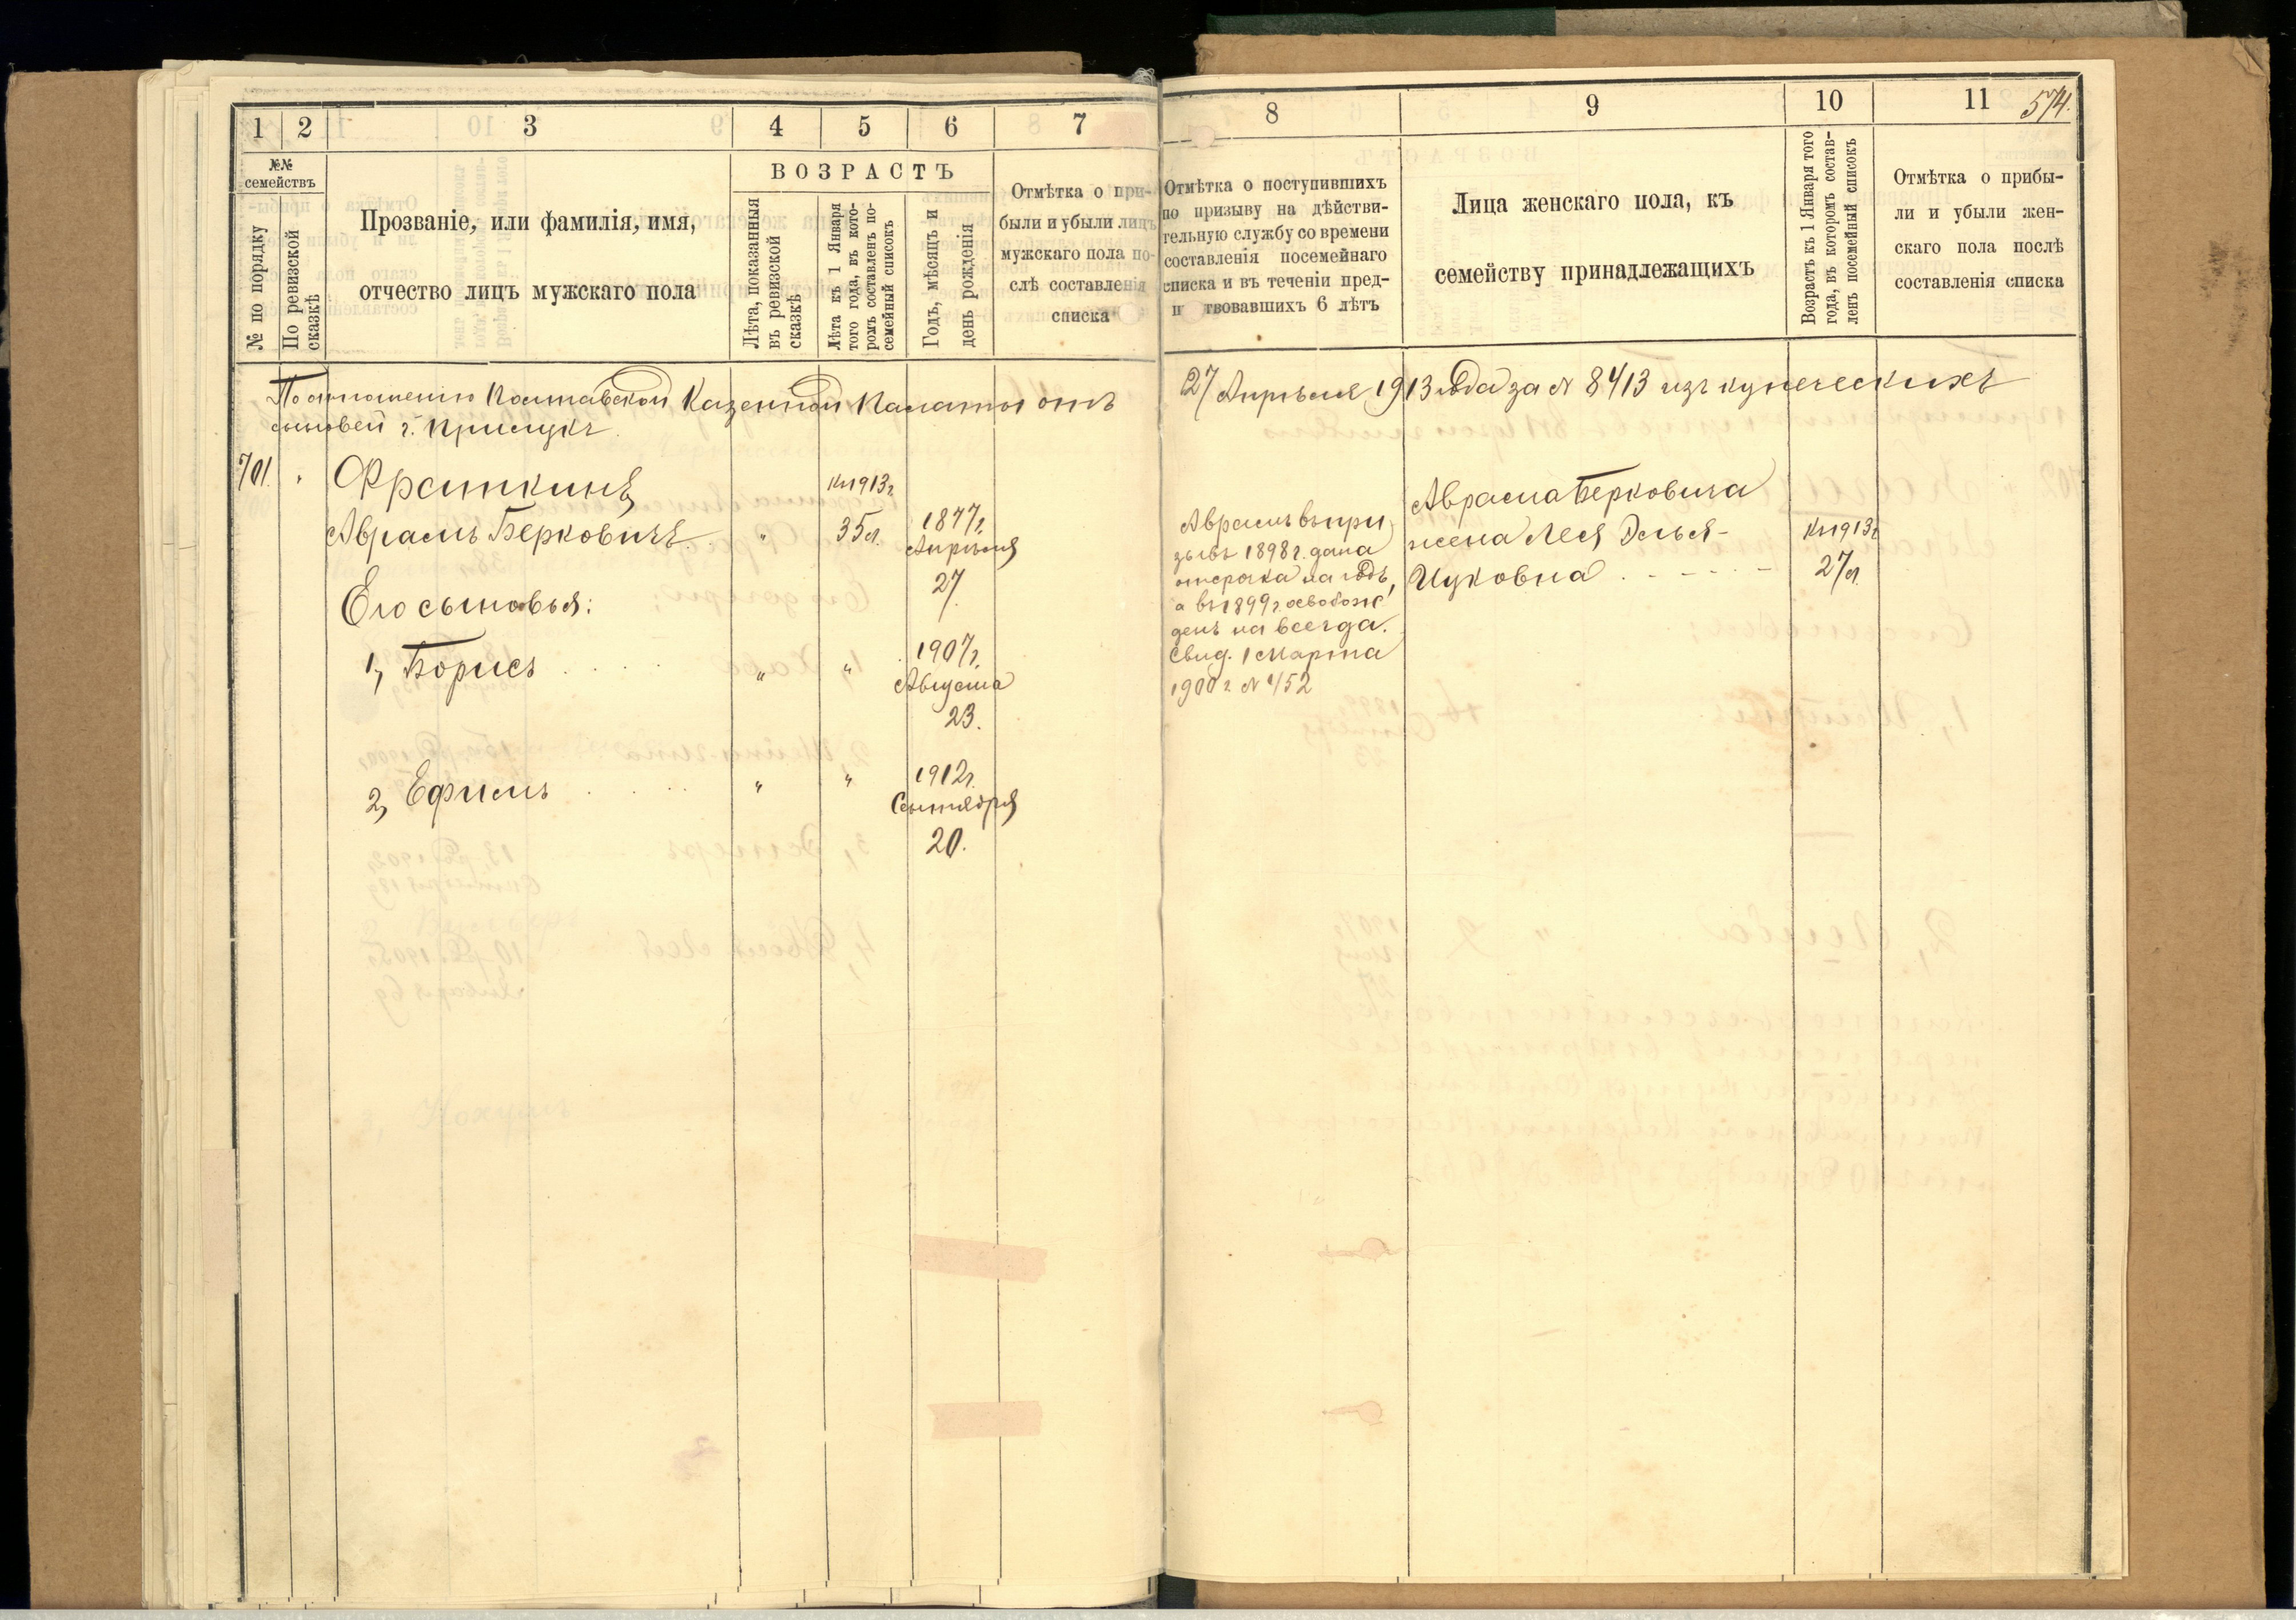 1 2 3 4 5 6 7
№№
семействъ
№ по порядку
По ревизской
сказкѣ
Прозваніе, или фамилія, имя,
отчество лицъ мужскаго пола
ВОЗРАСТЪ
Лѣта, показанныя
въ ревизской
сказкѣ
Лѣта къ 1 Января
того года, въ кото-
ромъ составленъ по-
семейный списокъ
Годъ, мѣсяцъ и
день рожденія
Отмѣтка о при-
были и убыли лицъ
мужскаго пола по-
слѣ составленія
списка
По отношенію Полтавской Казенной Палаты отъ
сыновей г. Прилукъ
701. Фраткинъ
Къ 1913 г
Аврамъ Берковичъ. " 35 л. 1877 г.
Апрѣля
27
Его сыновья:
1, Борисъ . . . . . " " 1907 г.
Августа
23.
2, Ефимъ . . . . . " " 1912 г.
Сентября
20.
8 9 10 11 574.
Отмѣтка о поступившихъ
по призыву на дѣйстви-
тельную службу со времени
составленія посемейнаго
списка и въ теченіи пред-
ш твовавшихъ 6 лѣтъ
Лица женскаго пола, къ
семейству принадлежащихъ
Возрастъ къ 1 Января того
года, въ которомъ состав-
ленъ посемейный списокъ
Отмѣтка о прибы-
ли и убыли жен-
скаго пола послѣ
составленія списка
27 Апрѣля 1913 года за № 8413 изъ купеческихъ
Аврамъ въ при-
зывъ 1898 г. дана
отсрочка на годъ,
а въ 1899 г. освобож-
денъ на всегда.
Свид. 1 Марта
1900 г. № 452
Аврама Берковича
жена Леся Эелья-
Цуковна . - - - - -
Къ 1913 г
27 л.